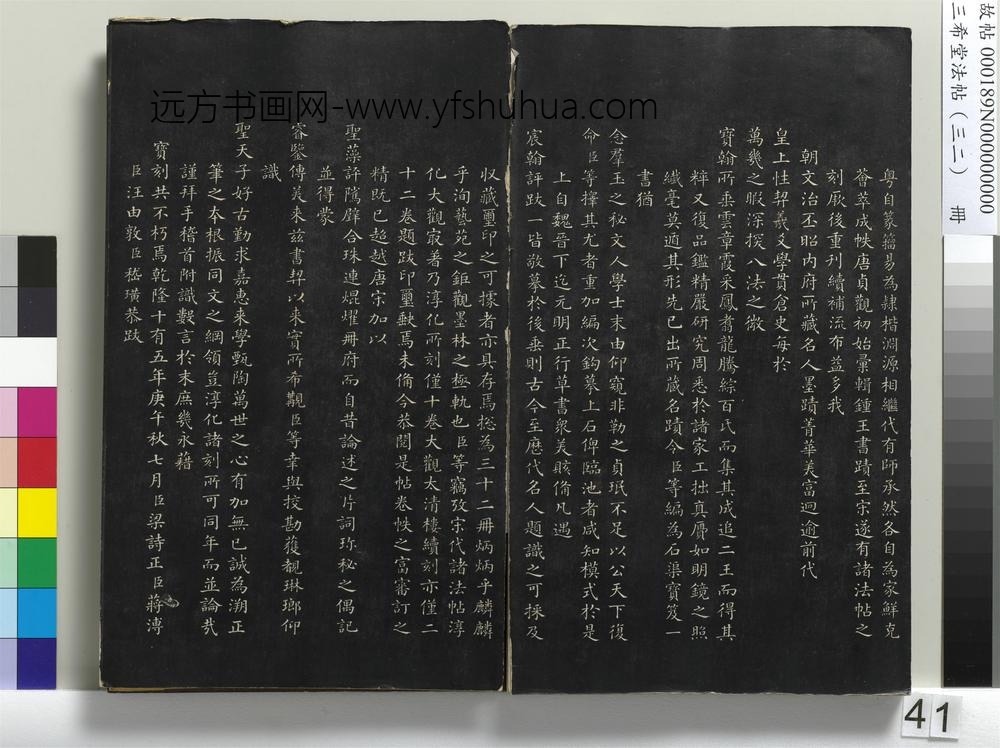 粤自篆籀易為隸楷淵源相繼代有師承然各自為家鮮克
薈萃成帙唐貞觀初始彙輯鍾王書蹟至宋遂有諸法帖之
刻厥後重刊續補流布益多我
朝文治丕昭内府所藏名人墨蹟菁華美富迥逾前代
皇上性契羲文學貫倉史每於
萬幾之暇深探八法之微
寶翰所垂雲章霞采鳳翥龍騰綜百氏而集其成追二王而得其
粹又復品鑑精嚴研究周悉於諸家工拙真贋如明鏡之照
纖毫莫遁其形先已出所藏名蹟命臣等編為石渠寶笈一
書猶
念羣玉之秘文人學士末由仰窺非勒之貞珉不足以公天下復
命臣等擇其尤者重加編次鉤摹上石俾臨池者咸知模式於是
上自魏晉下迄元明正行草書衆美賅備凡遇
宸翰評跋一皆敬摹於後垂則古今至歷代名人題識之可採及
收藏璽印之可據者亦具存焉總為三十二冊炳炳乎麟麟
乎洵藝苑之鉅觀墨林之極軌也臣等竊攷宋代諸法帖淳
化大觀最著乃淳化所刻僅十卷大觀太清樓續刻亦僅二
十二卷題跋印璽猷焉未備今恭閱是帖卷帙之富審訂之
精既已超越唐宋加以
聖藻評隲璧合珠連焜燿冊府而自昔論述之片詞珍秘之偶記
並得蒙
睿鑒傳美來兹書契以來實所希覯臣等幸與挍勘獲覩琳瑯仰
識
聖天子好古勤求嘉惠來學甄陶萬世之心有加無已誠為溯正
筆之本根振同文之綱領豈淳化諸刻所可同年而並論哉
謹拜手稽首附識數言於末庶幾永藉
寶刻共不朽焉乾隆十有五年庚午秋七月臣梁詩正臣蔣溥
臣汪由敦臣嵇璜恭跋
远方书画网-www.yfshuhua.com
故帖 000189N000000000
三希堂法帖（三二） 冊
41